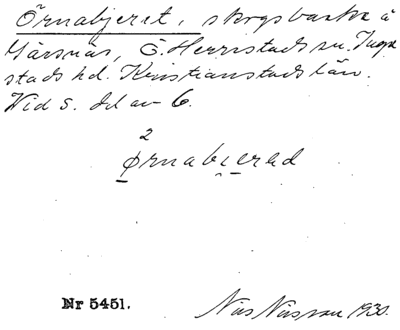 Örnabjeret, skogsbacke å
Gärsnäs, Ö. Herrestads sn. Inge-
stads hd. Kristianstads län.
Vid s. del av 6.
2
ørnabjerad
Nr 5451.
Nils Nilsson 1930.